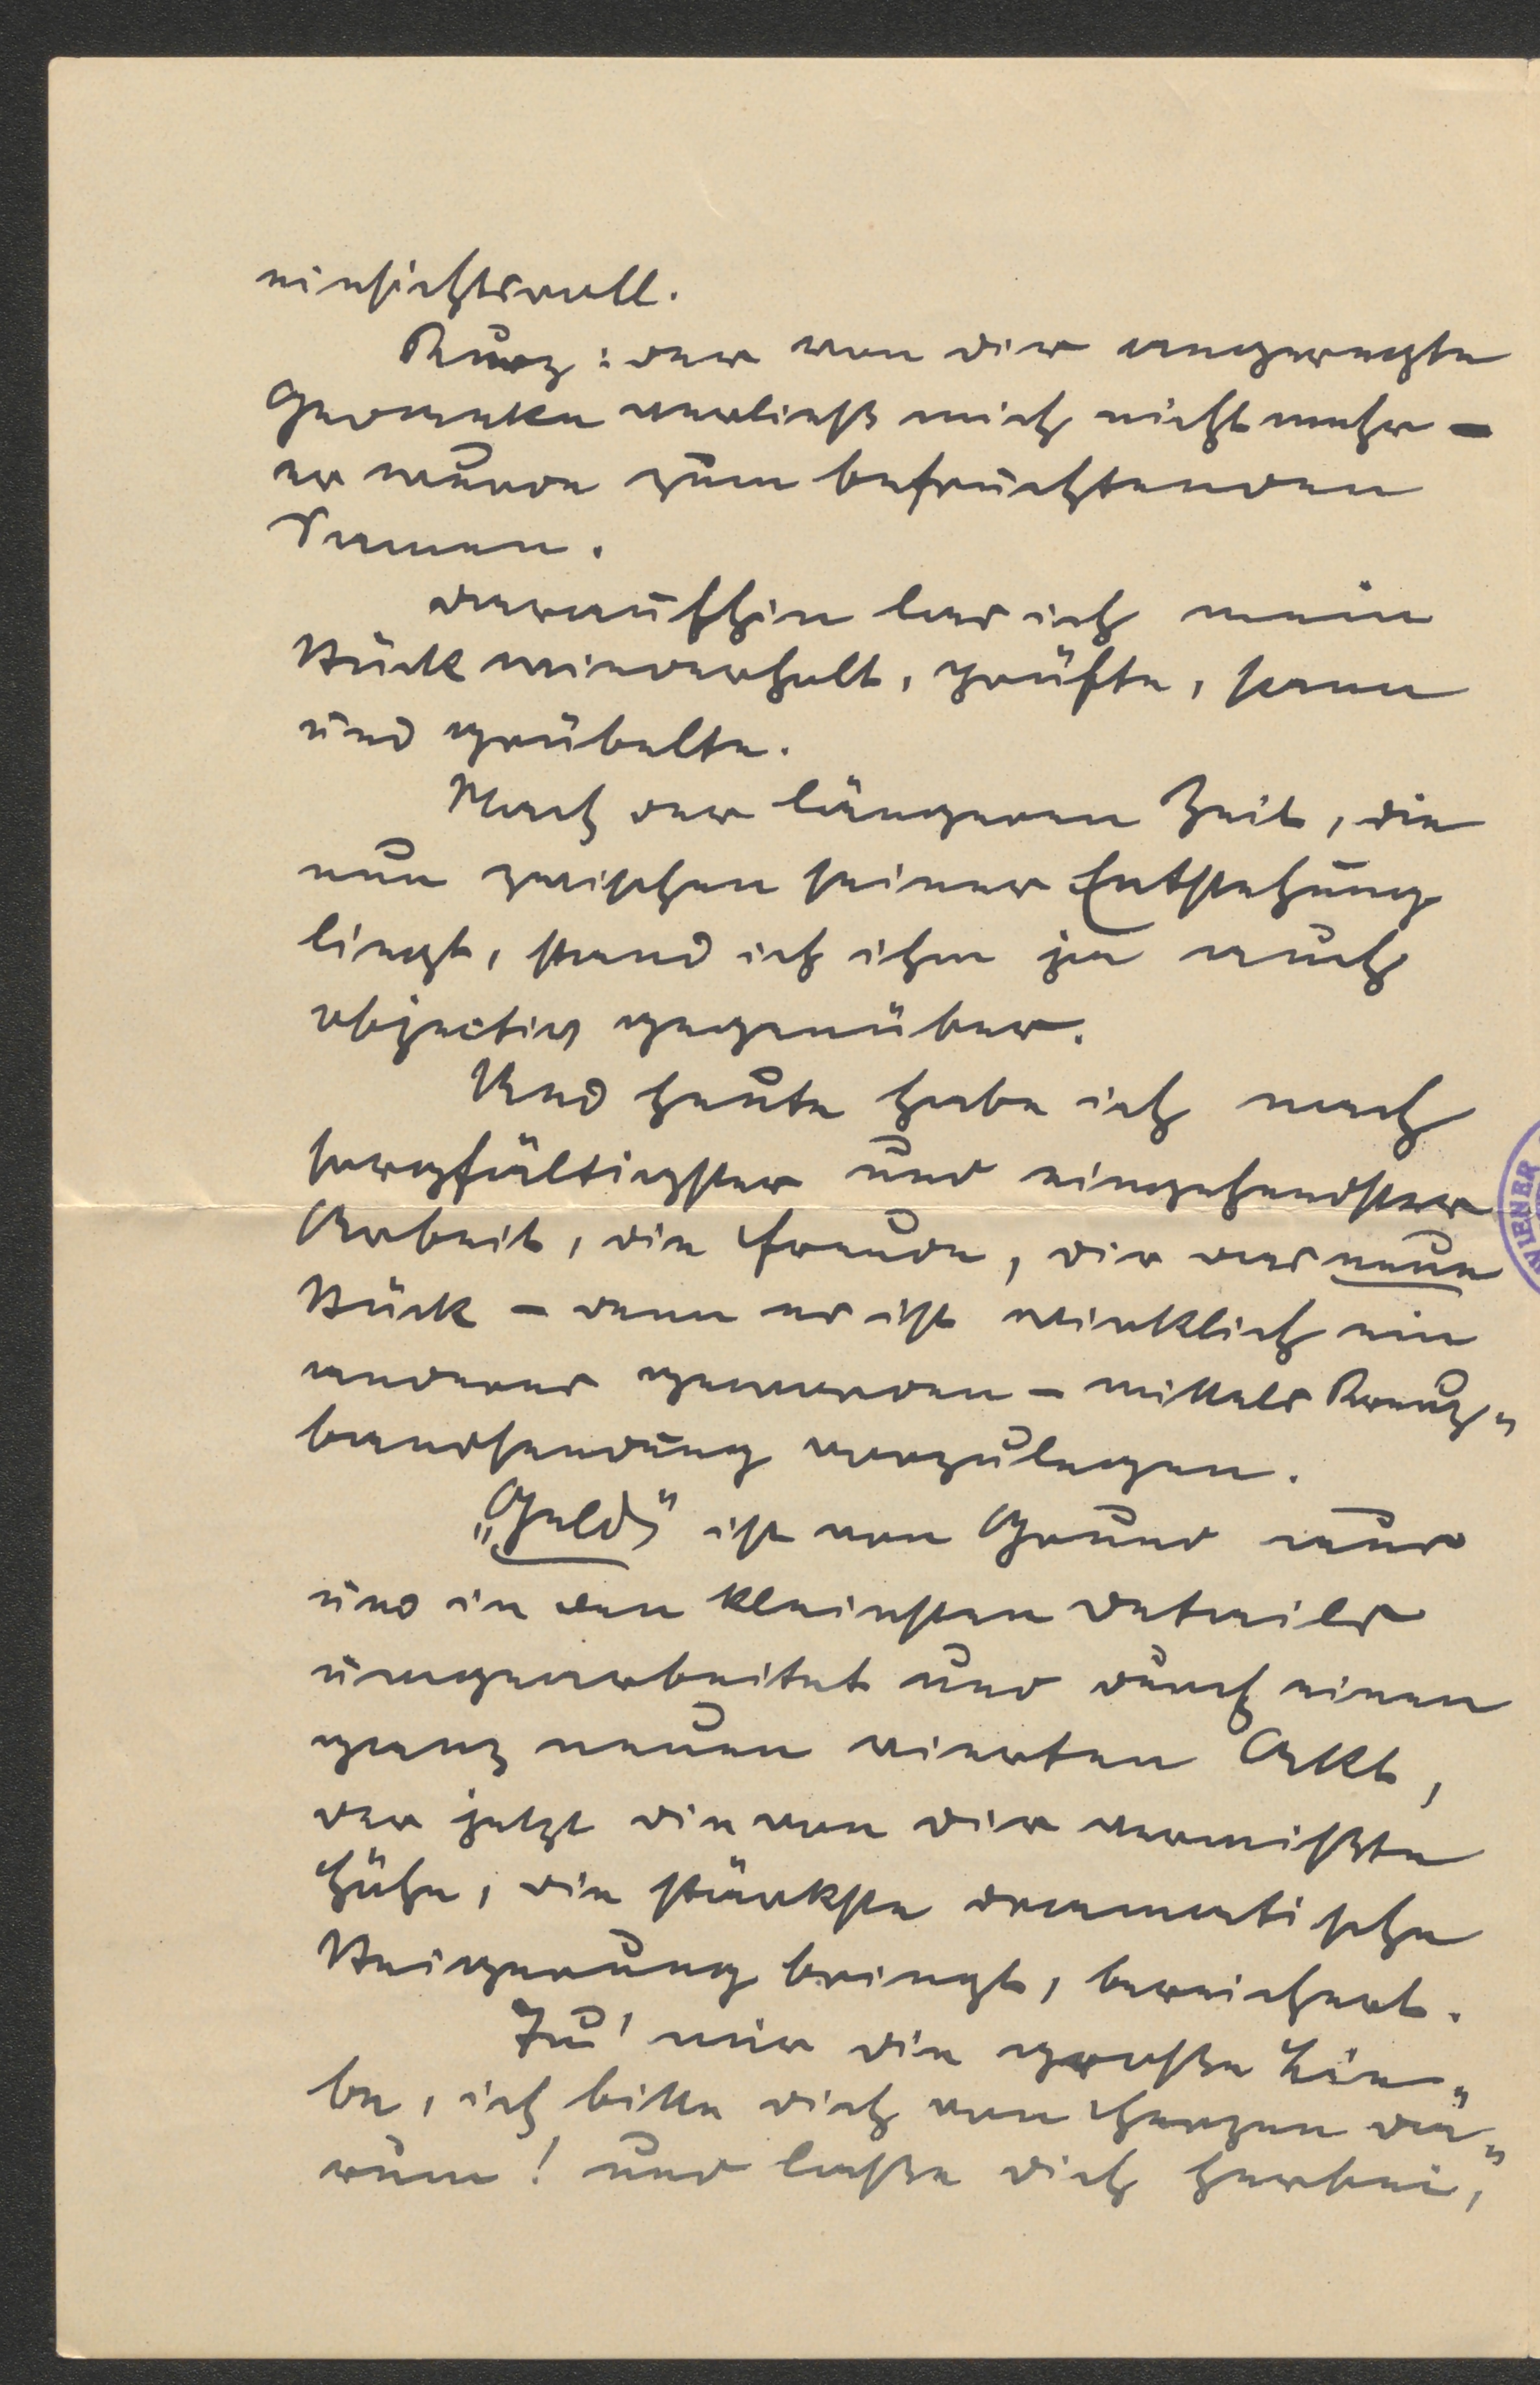 einsichtsvoll.
Kurz: der von dir angeregte
Gedanke verließ mich nicht mehr –
er wurde zum befruchtenden
Samen.
daraufhin las ich mein
Stück wiederholt, prüfte, sann
und grübelte.
Nach der längeren Zeit, die
nun zwischen seiner Entstehung
liegt, stand ich ihm ja auch
objectiv gegenüber.
Und heute habe ich nach
sorgfältigster und eingehendster
Arbeit, die Freude, dir das neue
Stück – denn es ist wirklich ein
anderes geworden – mittels Kreuz„
bandsendung vorzulegen.
„Geld“ ist von Grund aus
und in den kleinsten details
umgearbeitet und durch einen
ganz neuen vierten Akt,
der jetzt die von dir vermißte
Höhe, die stärkste dramatische
Steigerung bringt, bereichert.
Tu' mir die große Lie„
be, ich bitte dich von Herzen da„
rum! und laße dich herbei,
WIENER